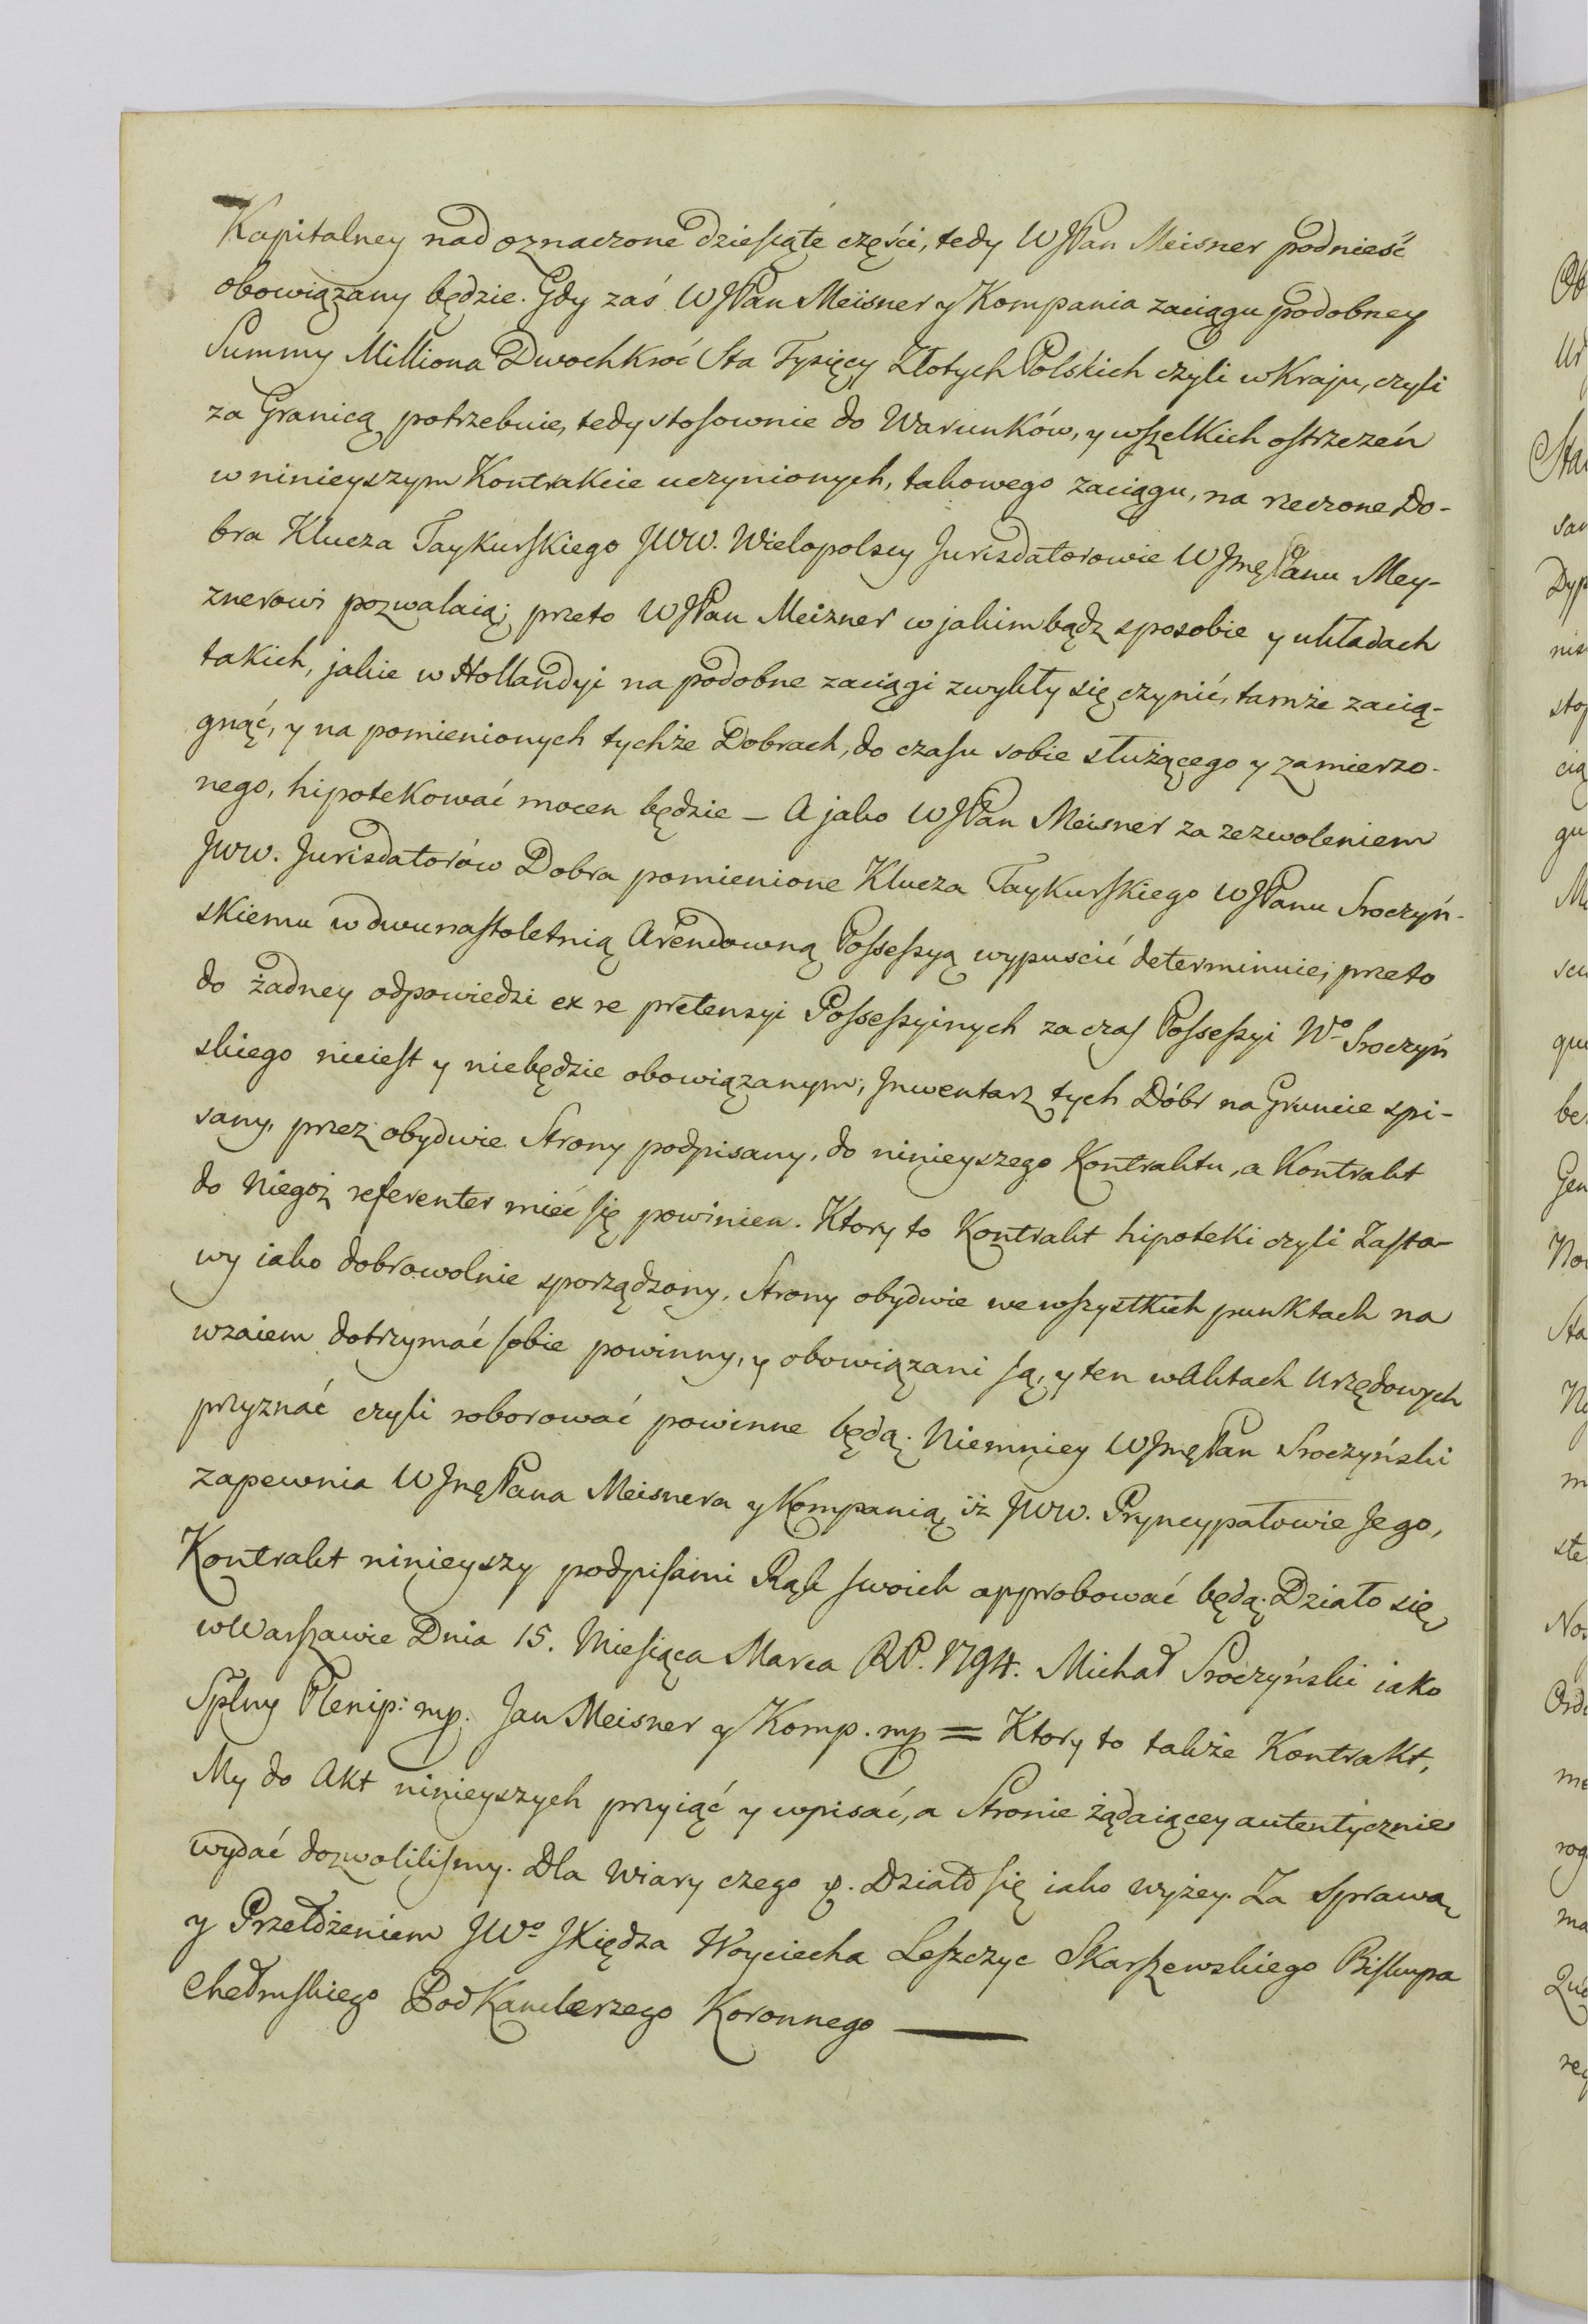 Kapitalney nad oznaczone dziesiąte części, tedy WJPan Meisner podnieść
obowiązany będzie. Gdy zaś WJPan Meisner y Kompania zaciągu podobney
Summy Milliona Dwochkroć Sta Tysięcy Złotych Polskich czyli w Kraju, czyli
za Granicą potrzebuie, tedy stosownie do Warunków, y wszelkich ostrzeżeń
w ninieyszym Kontrakcie uczynionych, takowego zaciągu, na rzeczone Do-
bra Klucza Taykurskiego JWW. Wielopolscy Jurisdatorowie WJmęPanu Mey-
znerowi pozwalaią; przeto WJPan Meizner w jakimbądz sposobie y układach
takich, jakie w Hollandyi na podobne zaciągi zwykły się czynić, tamże zacią-
gnąć, y na pomienionych tychże Dobrach, do czasu sobie służącego y zamierzo-
nego, hipotekować mocen będzie – A jako WJPan Meisner za zezwoleniem
JWW. Jurisdatorów Dobra pomienione Klucza Taykurskiego WJPanu Sroczyń-
skiemu w dwunastoletnią Arendowną Possessyą wypuscić determinuie; przeto
do żadney odpowiedzi ex re pretensyi Possessyinych za czas Possessyi Wo Sroczyń
skiego nieiest y niebędzie obowiązanym; Inwentarz tych Dóbr na Gruncie spi-
sany, przez obydwie Strony podpisany, do ninieyszego Kontraktu, a Kontrakt
do Niegoż referenter mieć się powinien. Ktory to Kontrakt hipoteki czyli Zasta-
wy iako dobrowolnie sporządzony, Strony obydwie we wszystkich punktach na
wzaiem dotrzymać sobie powinny, y obowiązani są, y ten w Aktach Urzędowych
przyznać czyli roborować powinne będą. Niemniey WJmęPan Sroczyński
zapewnia WJmęPana Meisnera y Kompanią iż JWW. Pryncypałowie Jego,
Kontrakt ninieyszy podpisami Rąk swoich approbować będą. Działo się
w Warszawie Dnia 15. Miesiąca Marca RP. 1794. Michał Sroczyński iako
Splny Plenip: mp. Jan Meisner y Komp. mp = Ktory to także Kontrakt,
My do Akt ninieyszych przyiąć y wpisać, a Stronie żądaiącey autentycznie
wydać dozwolilismy. Dla Wiary czego p. Działo się iako wyżey. Za Sprawą
y Przełożeniem JWo JXiędza Woyciecha Leszczyc Skarszewskiego Biskupa
Chełmskiego PodKanclerzego Koronnego —